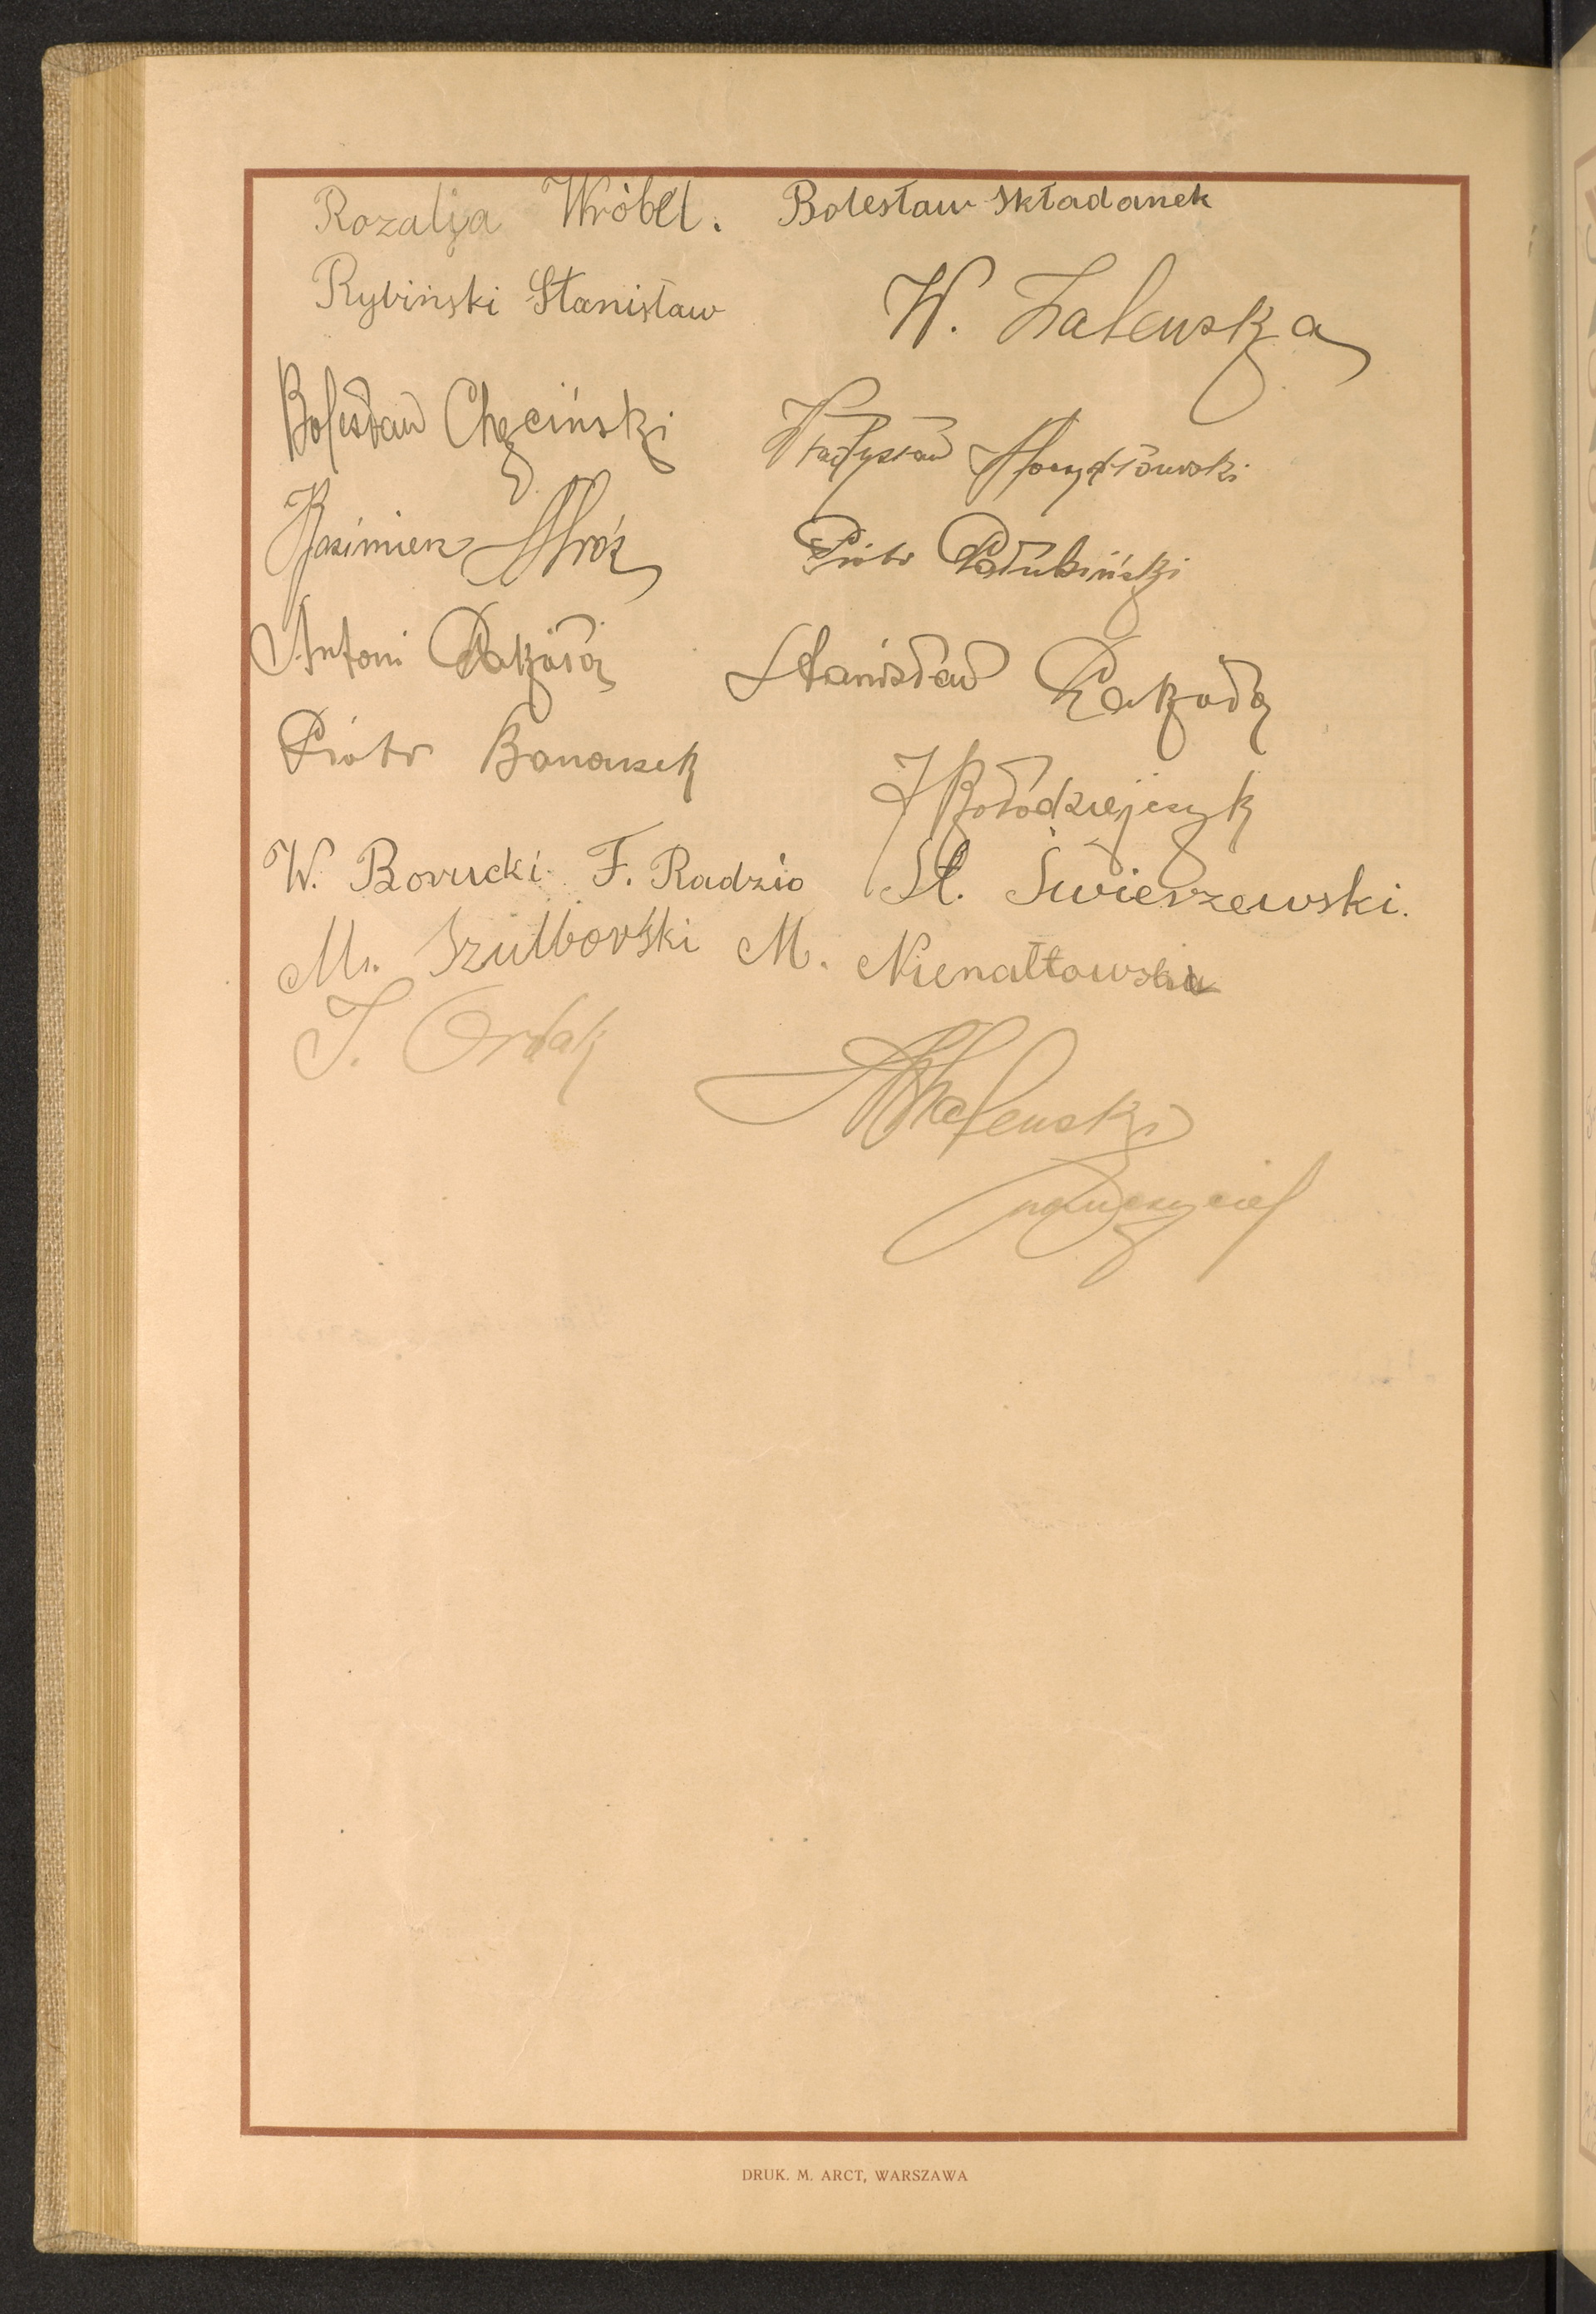 Rozalja Wróbel. Bolesław Składanek
Rybiński Stanisław W. Zalewska
Bolesław Chęciński Władysław
Kazimierz Mróz Piotr Połubiński
Antoni Stanisław
Piotr Banaszek J Kołodziejczyk
W. Borucki F. Radzio St. Świerszewski.
M. Szulborski M. Nienałtowska
J. Ordak Zalewski
nauczyciel
DRUK. M. ARCT, WARSZAWA